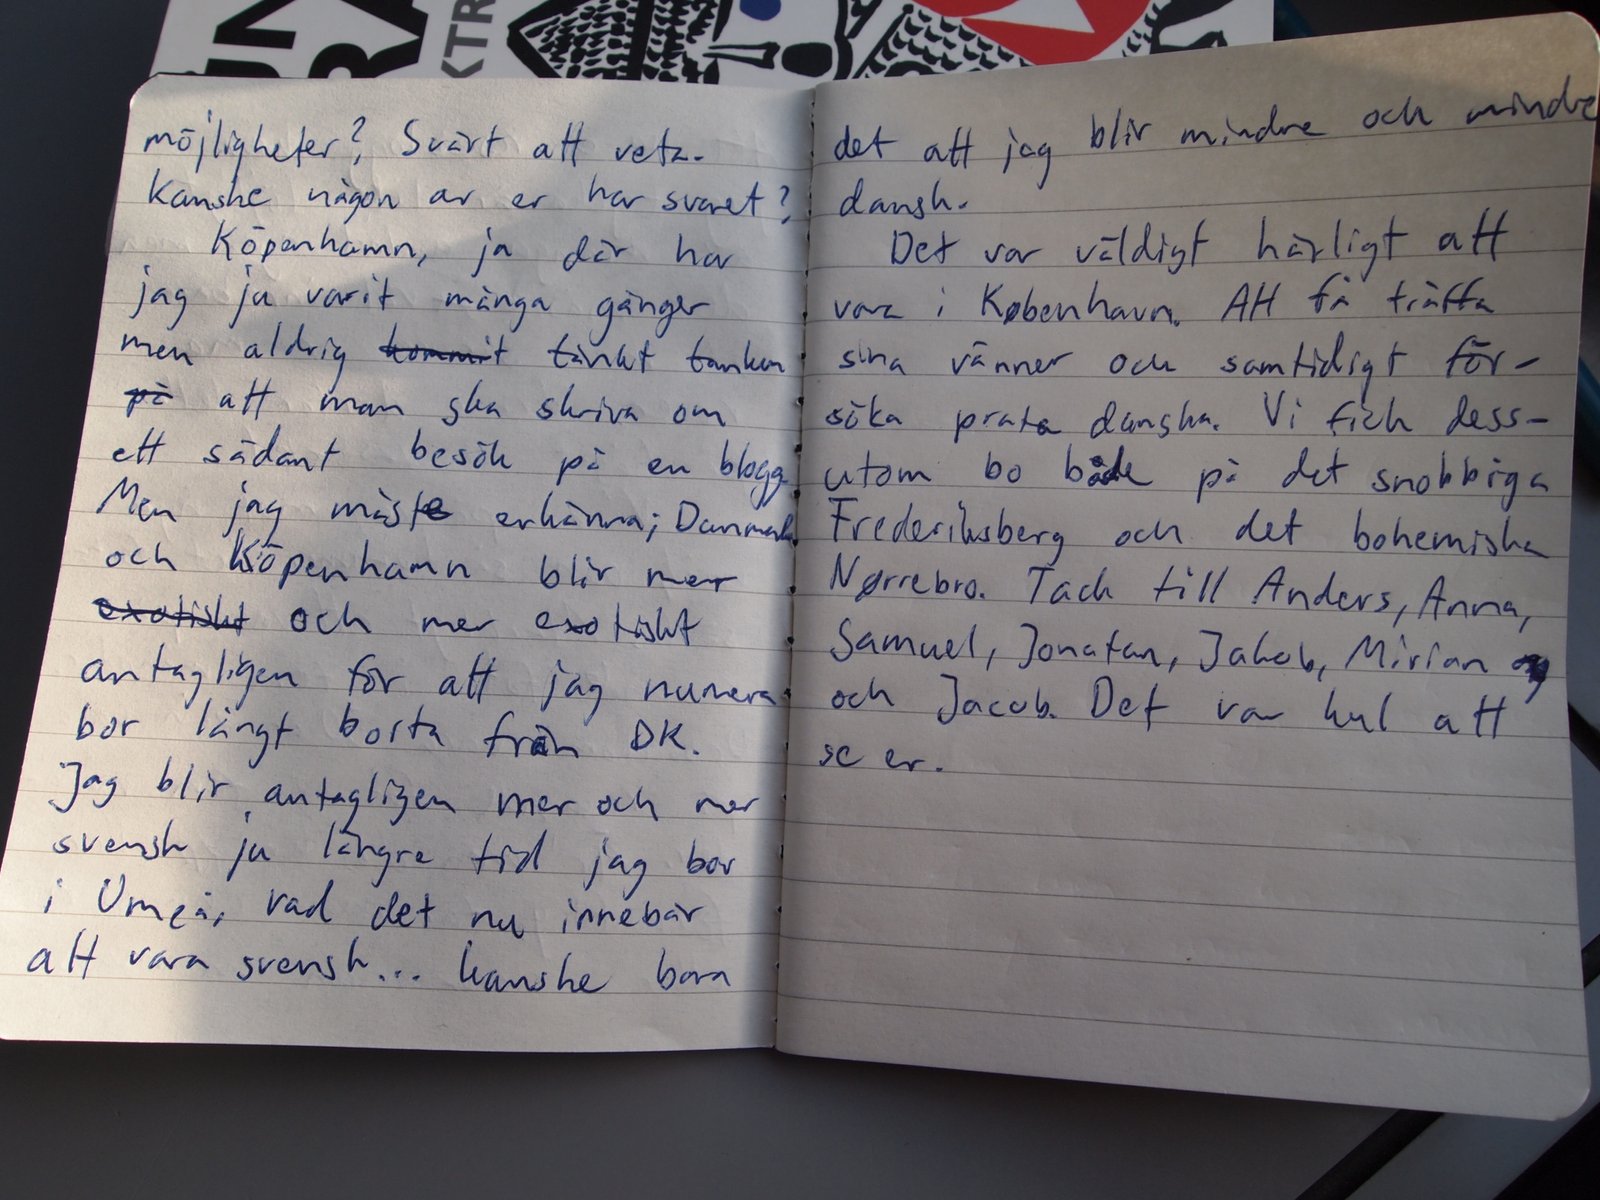 möjligheter? Svårt att veta.
Kanske någon av er har svaret?
Köpenhamn, ja där har
jag ju varit många gånger
men aldrig kommit tänkt tanken
på att man ska skriva om
ett sådant besök på en blogg
Men jag måste erkänna; Danmark
och Köpenhamn blir mer
exotiskt och mer exotiskt
antagligen för att jag numera
bor långt borta från DK.
Jag blir antagligen mer och mer
svensk ju längre tid jag bor
i Umeå, vad det nu innebär
att vara svensk... kanske bara
det att jag blir mindre och mindre
dansk.
Det var väldigt härligt att
vara i København. Att få träffa
sina vänner och samtidigt för-
söka prata danska. Vi fick dess-
utom bo både på det snobbiga
Frederiksberg och det bohemiska
Nørrebro. Tack till Anders, Anna,
Samuel, Jonatan, Jakob, Mirian
och Jacob. Det var kul att
se er.